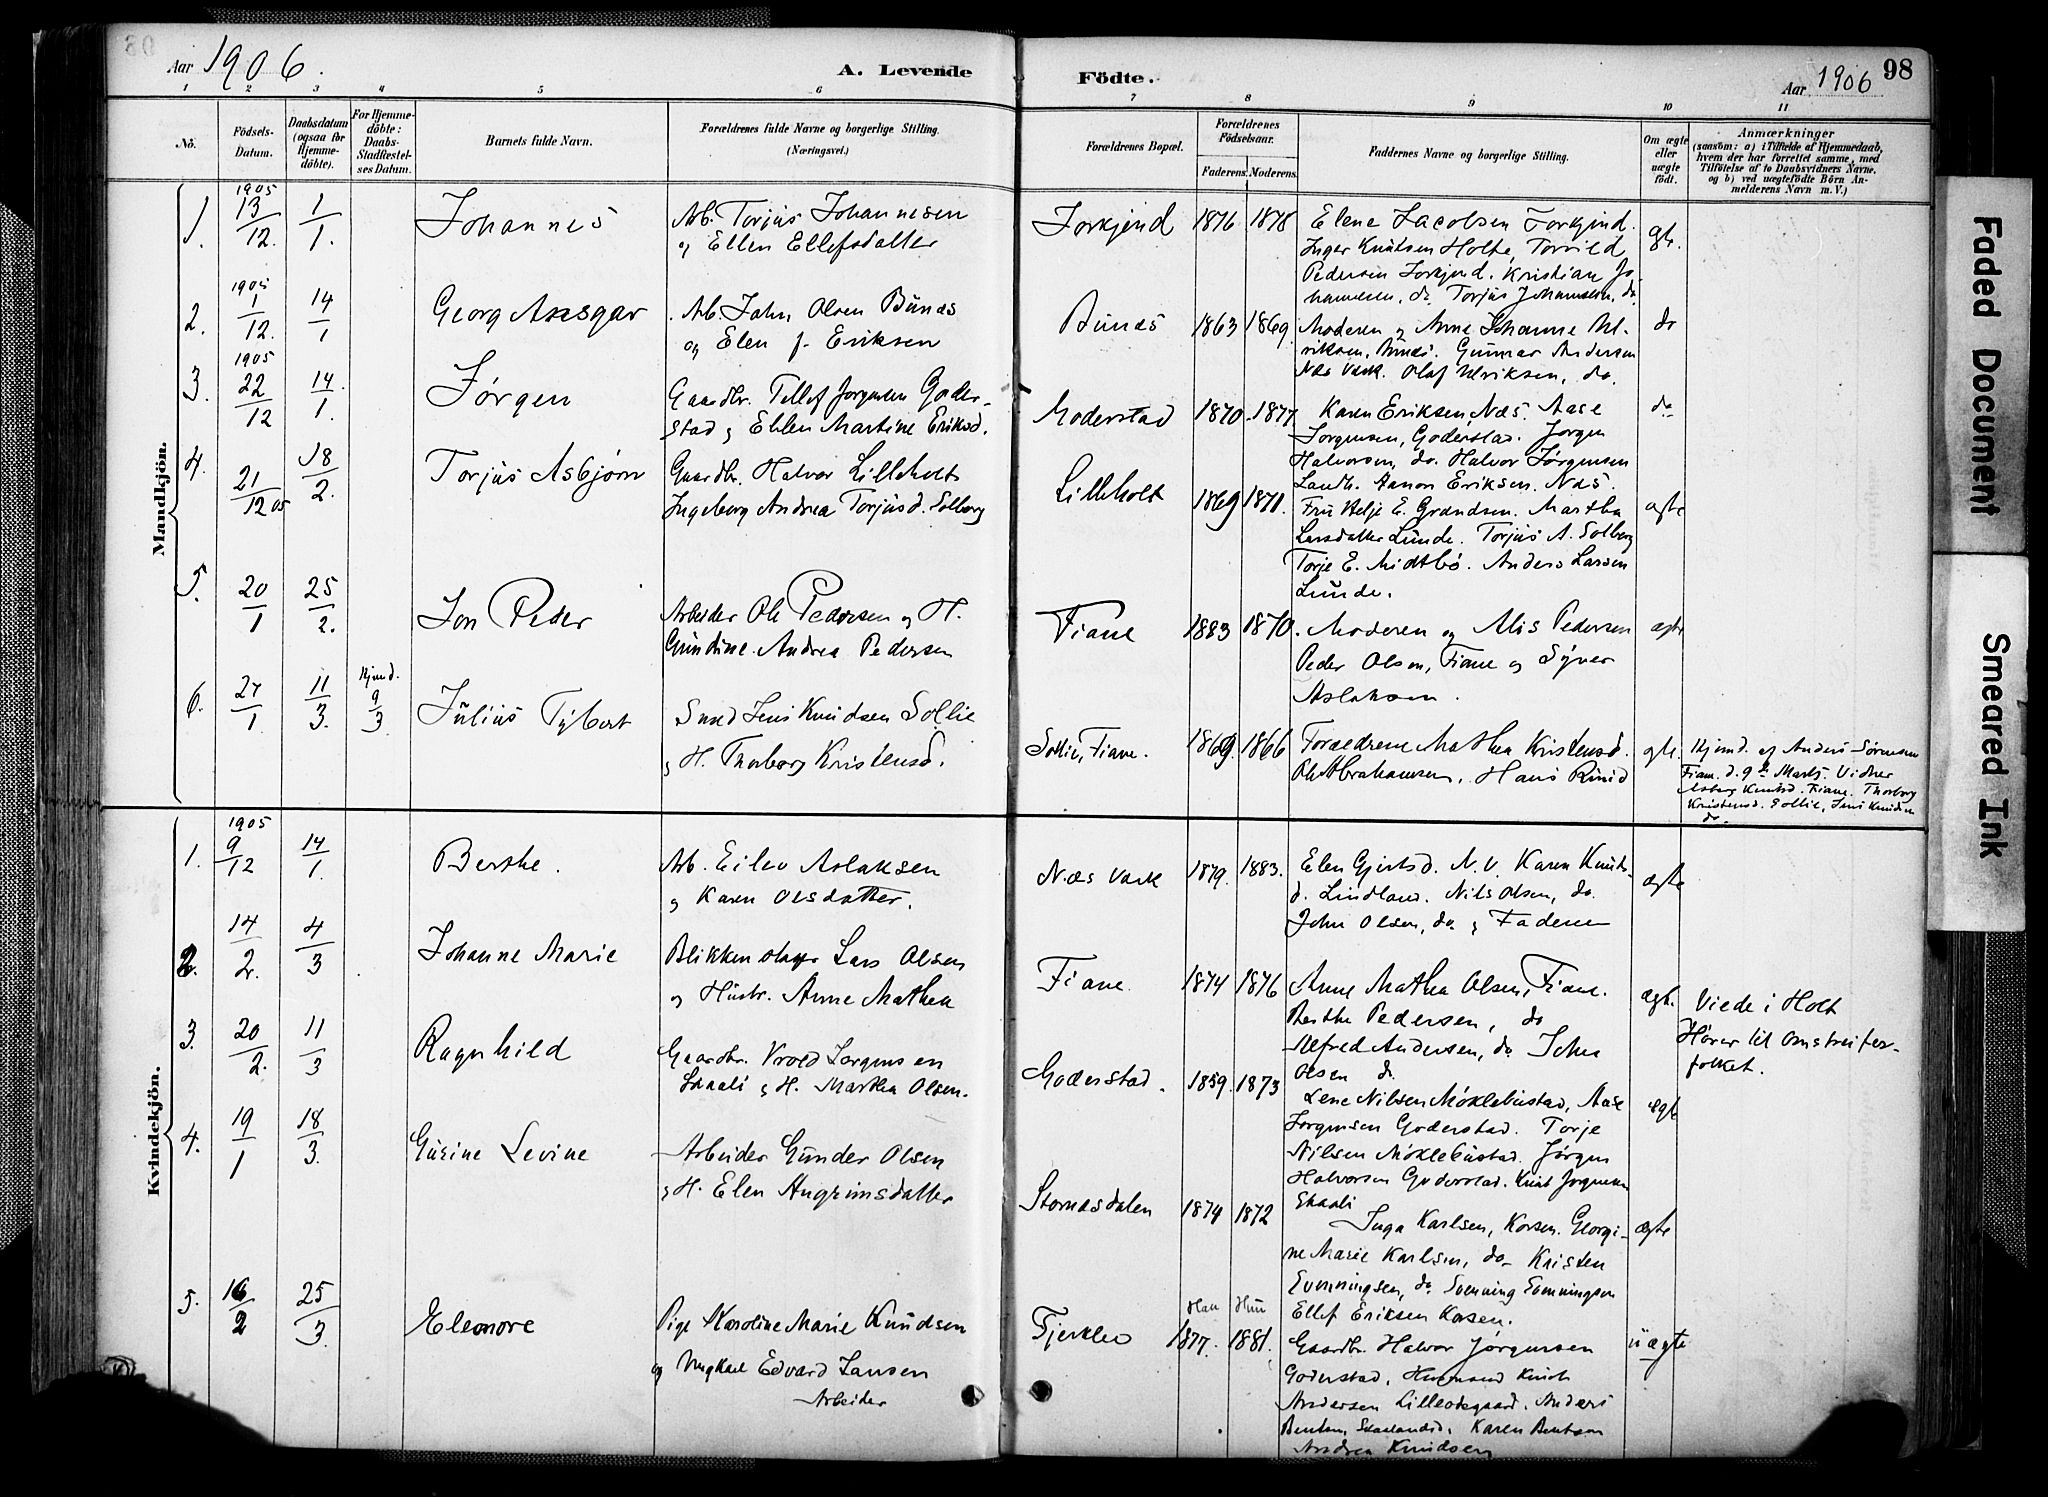 Aar 1906.
A. Levende Födte.
Aar 1906 98
1 2 3 4 5 6 7 8 9 10 11
No.
Födsels-Datum.
Daabsdatum (ogsaa for Hjemmedöbte).
For Hjemmedöbte: Daabs-Stadfæstelses Datum.
Barnets fulde Navn.
Forældrenes fulde Navne og borgerlige Stilling.
(Næringsvei.)
Forældrenes Bopæl.
Forældrenes Födselsaar.
Faderens. Moderens.
Faddernes Navne og borgerlige Stilling.
Om ægte eller uægte födt.
Anmærkninger
(saasom: a) i Tilfælde af Hjemmedaab,
hvem der har forrettet samme, med
Tilföielse af to Daabsvidners Navne,
og b) ved uægtefödte Börn Anmelderens Navn m. V.)
Mandkjön.
1. 1905 13/12. 1/1. Johannes
Arb. Torjus Johannesen
og Ellen Ellefsdatter
1876 1878
Elene Jacobsen
Inger Knutsen Holte,
Pedersen Kristian Jo-
hannesen, do. Torjus Johannesen, do.
2. 1905 1/12. 14/1 Georg Ansgar
Arb. John Olsen Bunæs
og Elen f. Eriksen
Bunæs 1863 1869.
Moderen og Anne Johanne Ul-
riksen, Bunæs. Gunnar Andersen
Næs Værk. Olaf Ulriksen, do.
do
3. 1905 22/12 14/1. Jørgen
Gaardbr. Tellef Jørgensen Goder-
stad og Ellen Martine Eriksd.
Goderstad 1870 1877
Karen Eriksen Næs. Aase
Jørgensen, Goderstad. Jørgen
Halvorsen, do. Halvor Jørgensen
Aanon Eriksen. Næs.
do
4. 21/12 05 18/2. Torjus Asbjørn
Gaardbr. Halvor Lilleholt
Ingeborg Andrea Torjusd. Solberg
Lilleholt 1869 1871.
Fru Helje E. Grandsen. Martha
Larsdatter Lunde. Torjus A. Solberg
Torje E. Midtbø. Anders Larsen
Lunde.
ægte
5. 20/1 25/2. Jon Peder
Arbeider Ole Pedersen og H.
Gundine Andrea Pedersen
Fiane 1883 1870.
Moderen og Alis Pedersen
Peder Olsen, Fiane og Syver
Aslaksen.
ægte
6. 27/1 11/3. Hjmd. 9/3 Julius Tybert
Smed Jens Knudsen Sollie
og H. Thorborg Kristensd.
Sollie, Fiane. 1869. 1866
Forældrene Mathea Kristensd.
Ole Abrahamsen. Hans
Hjmd. af Anders Sørensen
Fiane. d. 9de Marts. Vidner
Knutsd. Fiane. Thorborg
Kristensd. Sollie, Jens Knudsen
do.
Kvindekjön.
1. 1905 9/12 14/1. Berthe.
Arb. Eilev Aslaksen
og Karen Olsdatter.
Næs Værk 1879. 1883.
Elen Gjertsd. N. V. Karen Knuts-
d. Lindland. Nils Olsen, do.
John Olsen, do og Faderen
ægte
2. 14/2. 4/3 Johanne Marie
Blikkenslager Lars Olsen
og Hustr. Anne Mathea
Fiane. 1874 1876
Anne Mathea Olsen, Fiane.
Berthe Pedersen, do
Alfred Andersen, do John
Olsen do.
ægt.
Viede i Holt
Hører til Omstreifer-
folket.
3. 20/2. 11/3 Ragnhild
Gaardbr. Vrold Jørgensen
Skaali og H. Martha Olsen.
Goderstad. 1859. 1873
Lene Nilsen Møklebustad, Aase
Jørgensen Goderstad. Torje
Nilsen Møklebustad. Jørgen
Halvorsen Goderstad. Knut Jørgensen
Skaali
ægte
4. 19/1 18/3. Gusine Levine
Arbeider Gunder Olsen
og H. Elen Angrimsdatter
Stornæsdalen 1874 1872
Inga Karlsen, Korsen. Georgi-
ne Marie Karlsen, do. Kristen
Evenningsen, do Evenning Evenningsen
Ellef Eriksen Korsen.
ægte
5. 16/2 25/3 Eleonore
Pige Karoline Marie Knudsen
og Ungkarl Edvard Jansen
Arbeider
Fjerkleo Han 1877. Hun 1881.
Gaardbr. Halvor Jørgensen
Goderstad. Husmand Knut
Andersen Lilleødegaard. Anders
Bentsen, Karen Bentsen
Andrea Knudsen
uægte
Faded Document
Smeared Ink